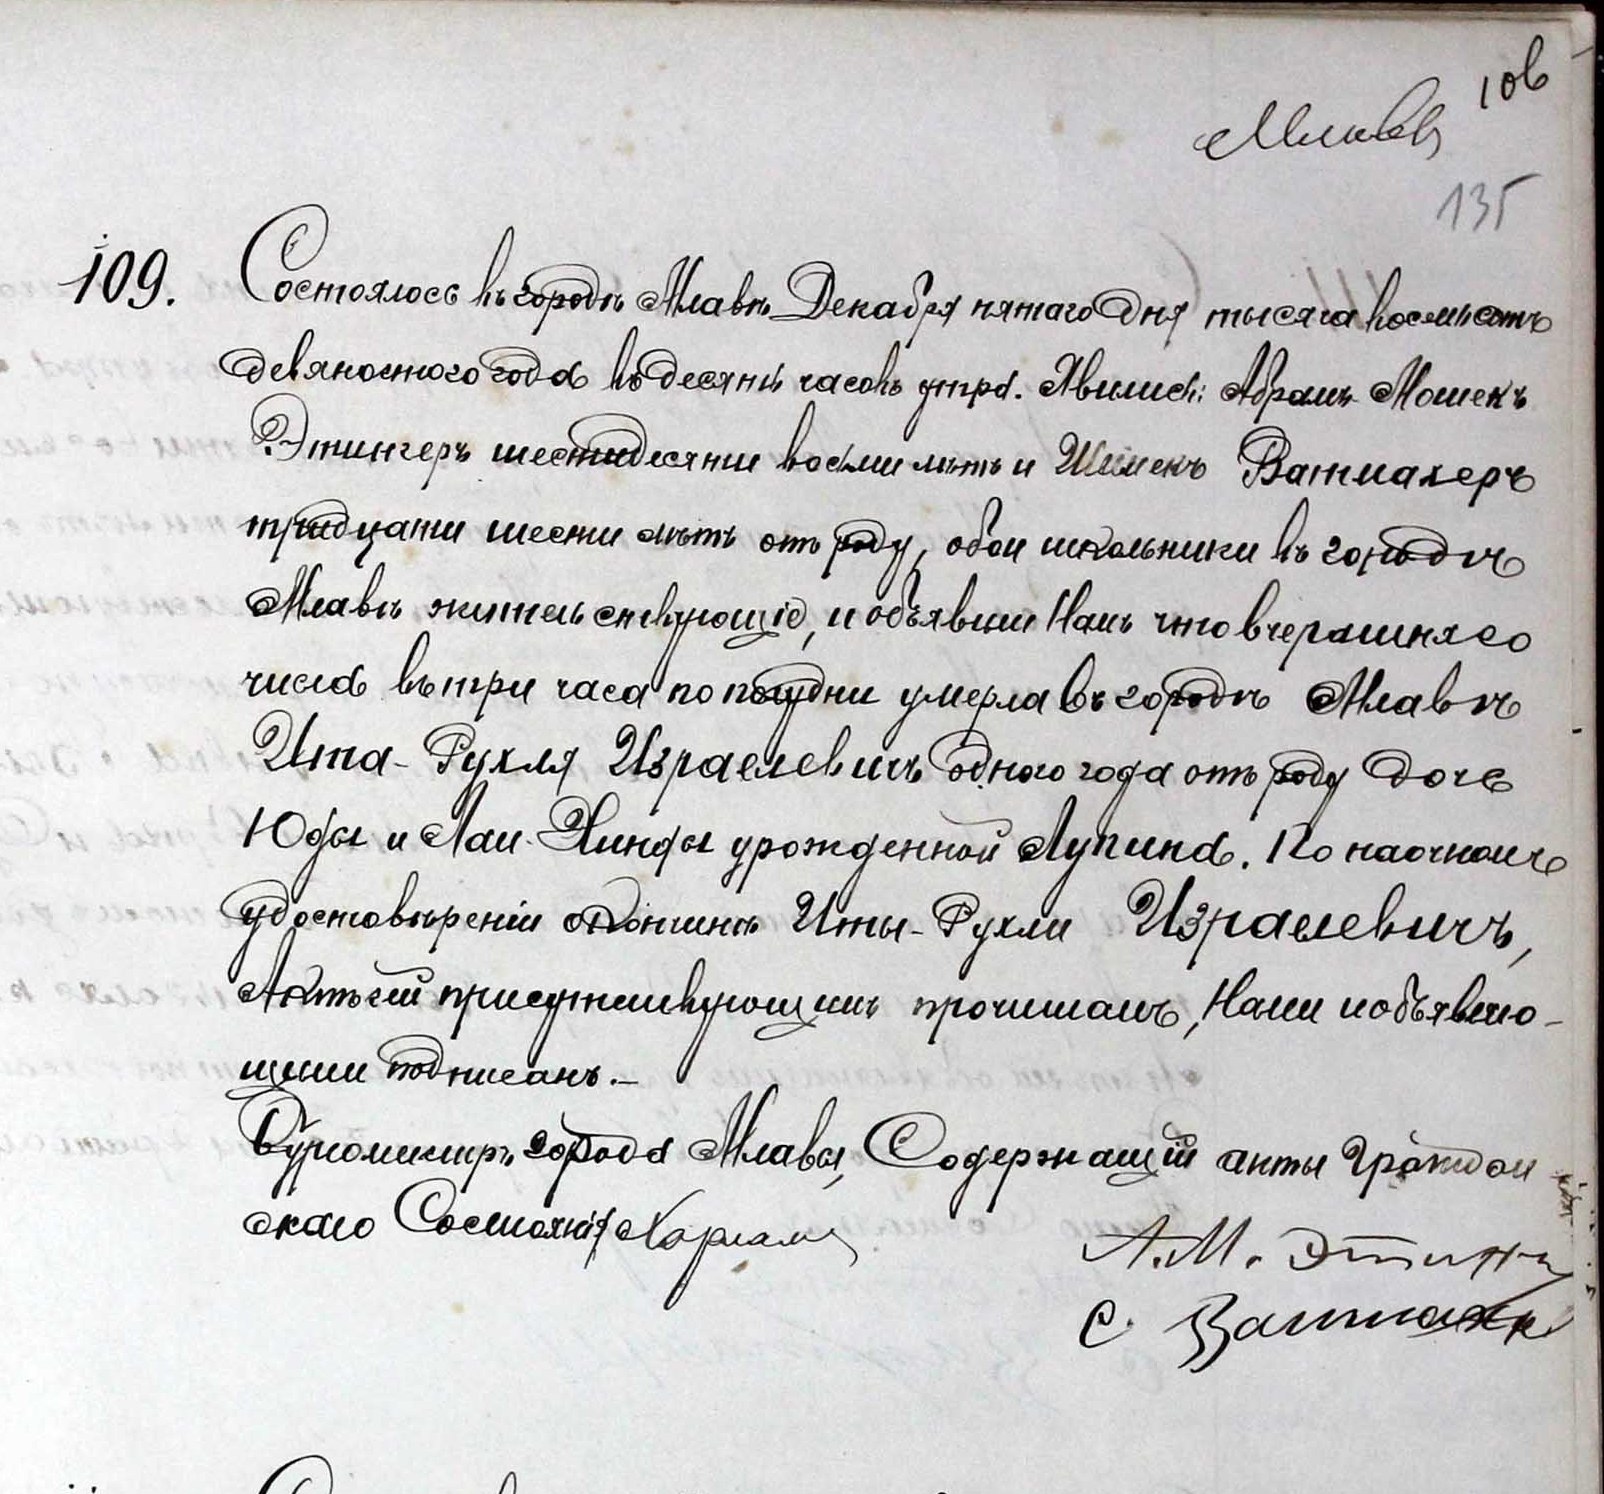 106
135
109. Состоялось въ городѣ Млавѣ Декабря пятаго дня тысяча восемьсотъ
девяностого года въ десять часовъ утра. Явились: Абрамъ Мошекъ
Этингеръ шестидесяти восьми лѣтъ и Шимекъ Ватмахеръ
тридцати шести лѣтъ отъ роду, обои школьники въ городѣ
Млавѣ жительствующіе, и объявили Намъ что вчерашняго
числа въ три часа по полудни умерла въ городѣ Млавѣ
Ита-Рухля Израелевичъ одного года отъ роду дочь
Юды и Лаи-Хинды урожденной Лупина. По наочномъ
удостовѣреніи окончинѣ Иты-Рухли Израелевичъ,
Актъ сей присутствующимъ прочитанъ, Нами и объявляю-
щими подписанъ.-
Бургомистръ города Млавы, Содержащій акты Граждан
скаго Состоянія
А.М. Этинг
С.